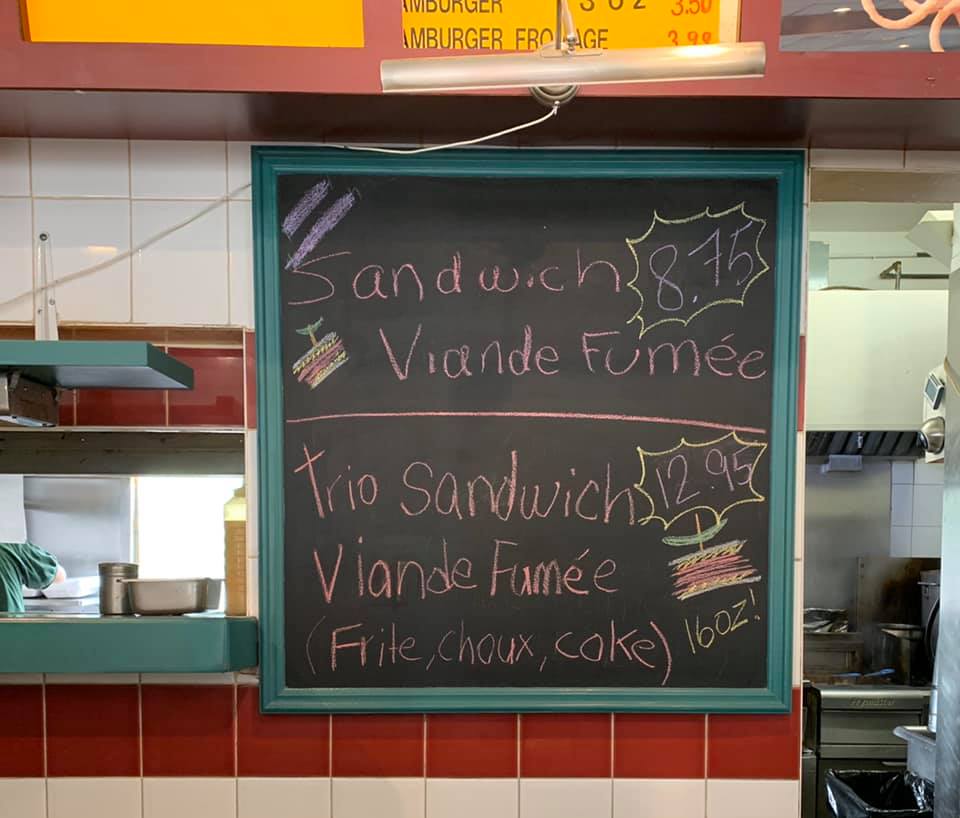 AMBURGER 3 OZ 3.50
AMBURGER FROMAGE 3.98
Sandwich 8.75
Viande Fumée
Trio Sandwich 12.95
Viande Fumée
(Frite, choux, coke) 16oz!